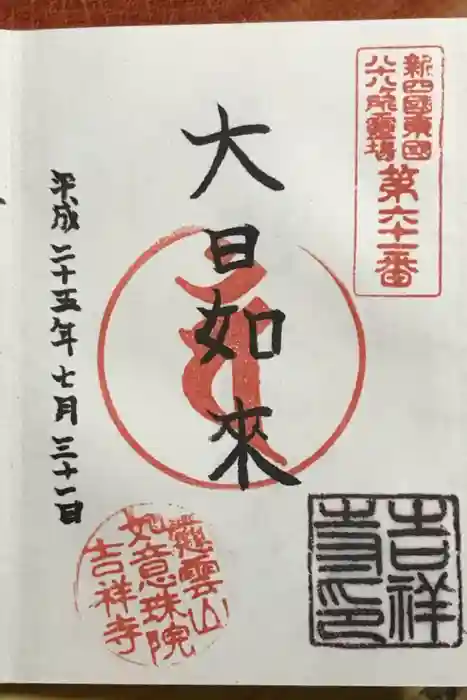 新四國東國
八十八ヶ所靈場
第六十一番
大日如來
平成二十五年七月三十一日
吉祥
寺印
雲山
如意珠院
吉祥寺